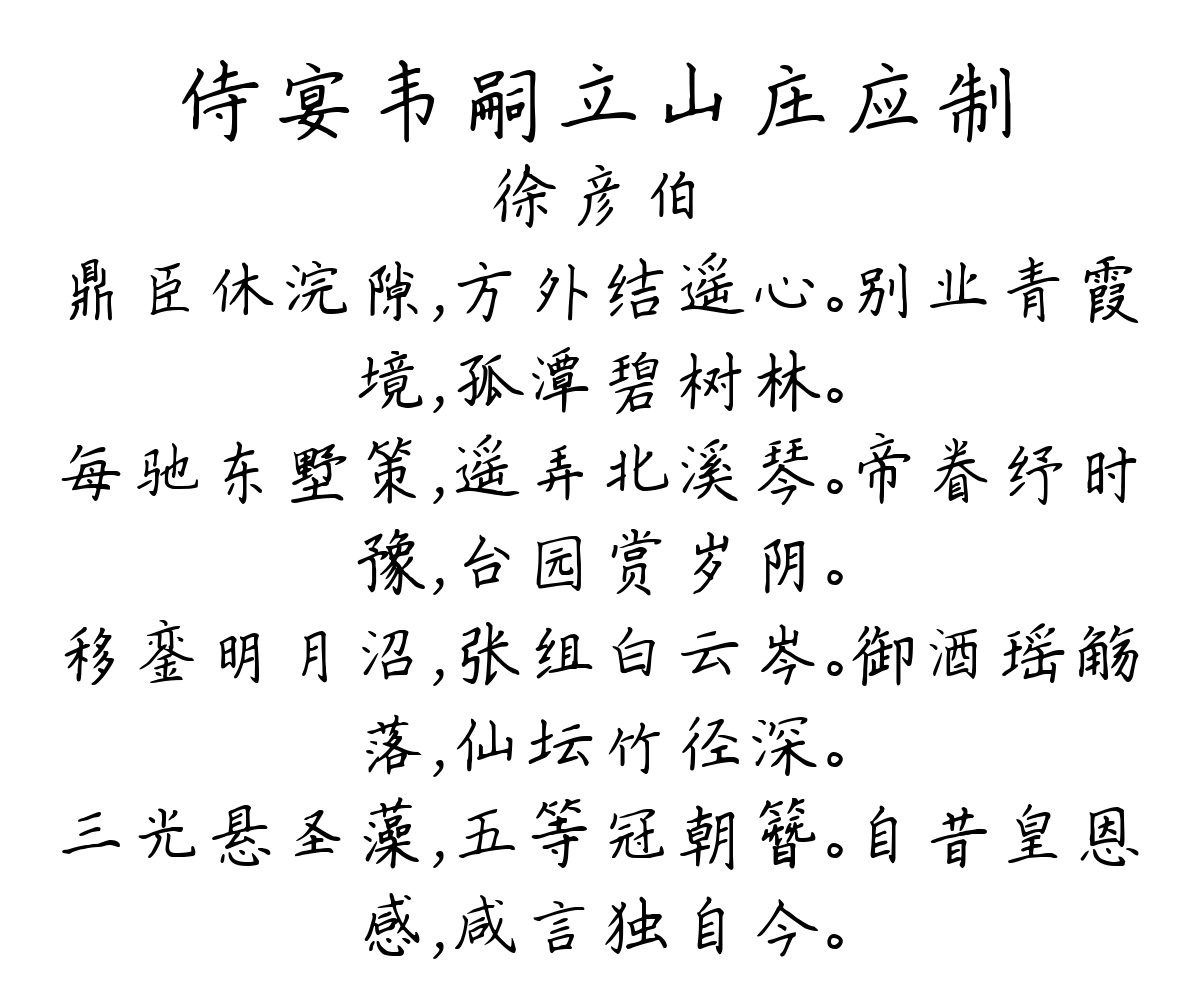 侍宴韦嗣立山庄应制
徐彦伯
鼎臣休浣隙,方外结遥心。别业青霞
境,孤潭碧树林。
每驰东墅策,遥弄北溪琴。帝眷纾时
豫,台园赏岁阴。
移銮明月沼,张组白云岑。御酒瑶觞
落,仙坛竹径深。
三光悬圣藻,五等冠朝簪。自昔皇恩
感,咸言独自今。